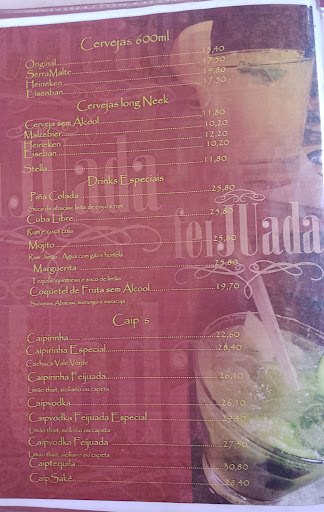 Cervejas 600ml
Original 15,40
SerraMalte 17,50
Heineken 19,80
Eisenban 17,50
Cervejas long Neek
Cerveja sem Alcool 11,80
Malzebier 10,20
Heineken 12,20
Eiseban 10,20
Stella 11,80
Drinks Especiais
Piña Colada 25,80
Suco de abacaxi, leite de coco e rum
Cuba Libre 25,80
Rum e coca cola
Mojito 25,80
Rum, limão, Agua com gás e hortela
Marguerita 25,80
Tequila, e suco de limão
Coquetel de Fruta sem Alcool 19,70
Sabores: Abacaxi, morango e maracujá
Caip's
Caipirinha 22,60
Caipirinha Especial 28,40
Cachaça Vale Verde
Caipirinha Feijuada 26,10
Limão thait, siciliano ou capeta
Caipvodka 26,10
Caipvodka Feijuada Especial 29,40
Limão thait, siciliano ou capeta
Caipvodka Feijuada 27,50
Limão thait, siciliano ou capeta
Caiptequila 30,80
CaipSakê 28,40